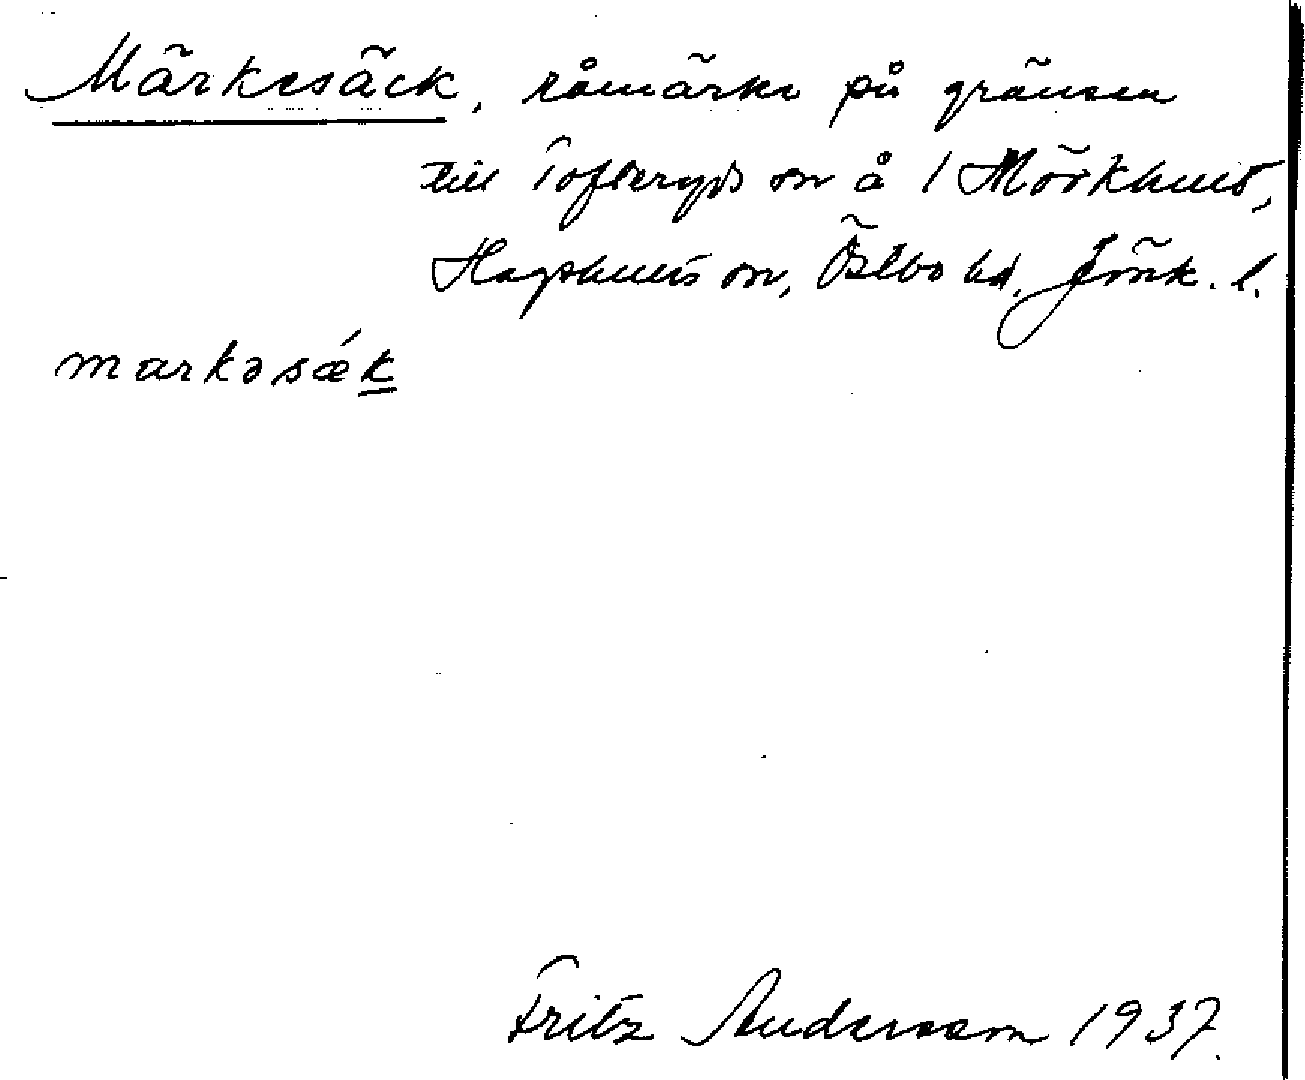 Märkesäck, råmärke på gränsen
till Tofteryds sn å 1 Mörkhult,
Hagshults sn, Östbo hd, Jönk. l.
markəsǽk
Fritz Andersson 1937.